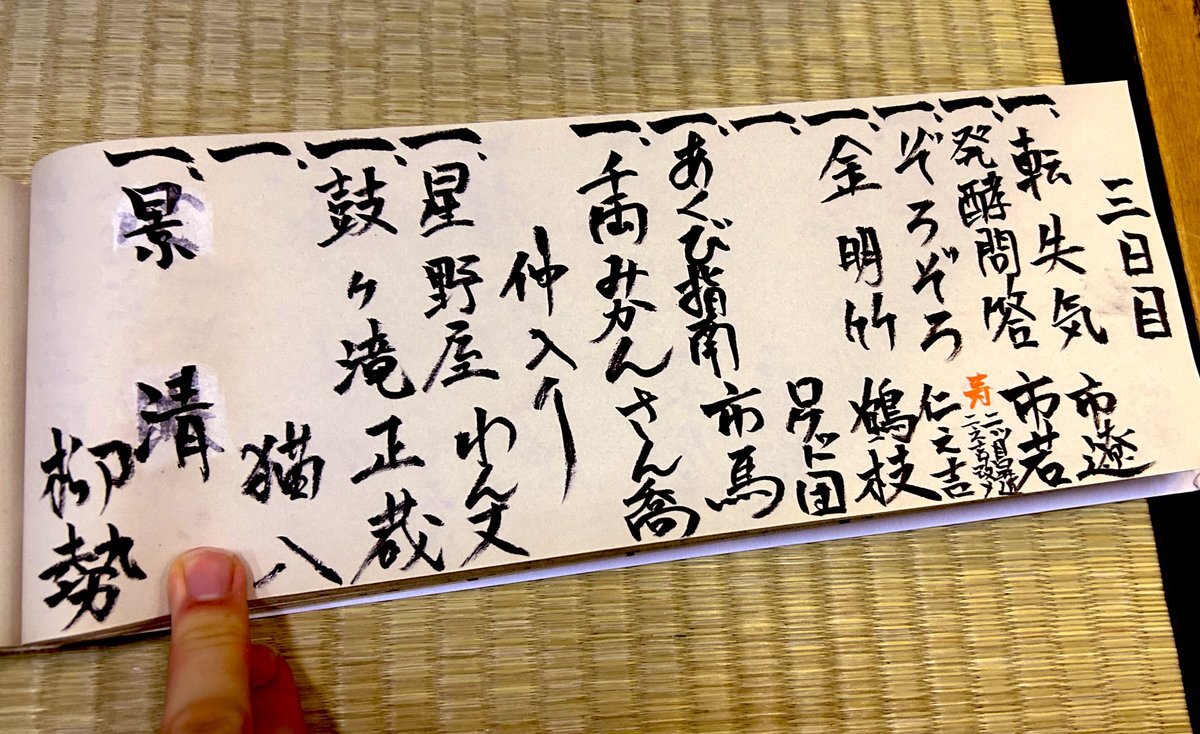 三日目
一、転失気 市遼
一、発酵問答 市若
寿 二ツ目昇進
改メ
一、ぞろぞろ 仁之吉
一、金明竹 鶴枝
一、ロケット団
一、あくび指南 市馬
一、千両みかん さん喬
仲入り
一、星野屋 わん丈
一、鼓ヶ滝 正蔵
一、猫八
一、景清 柳勢